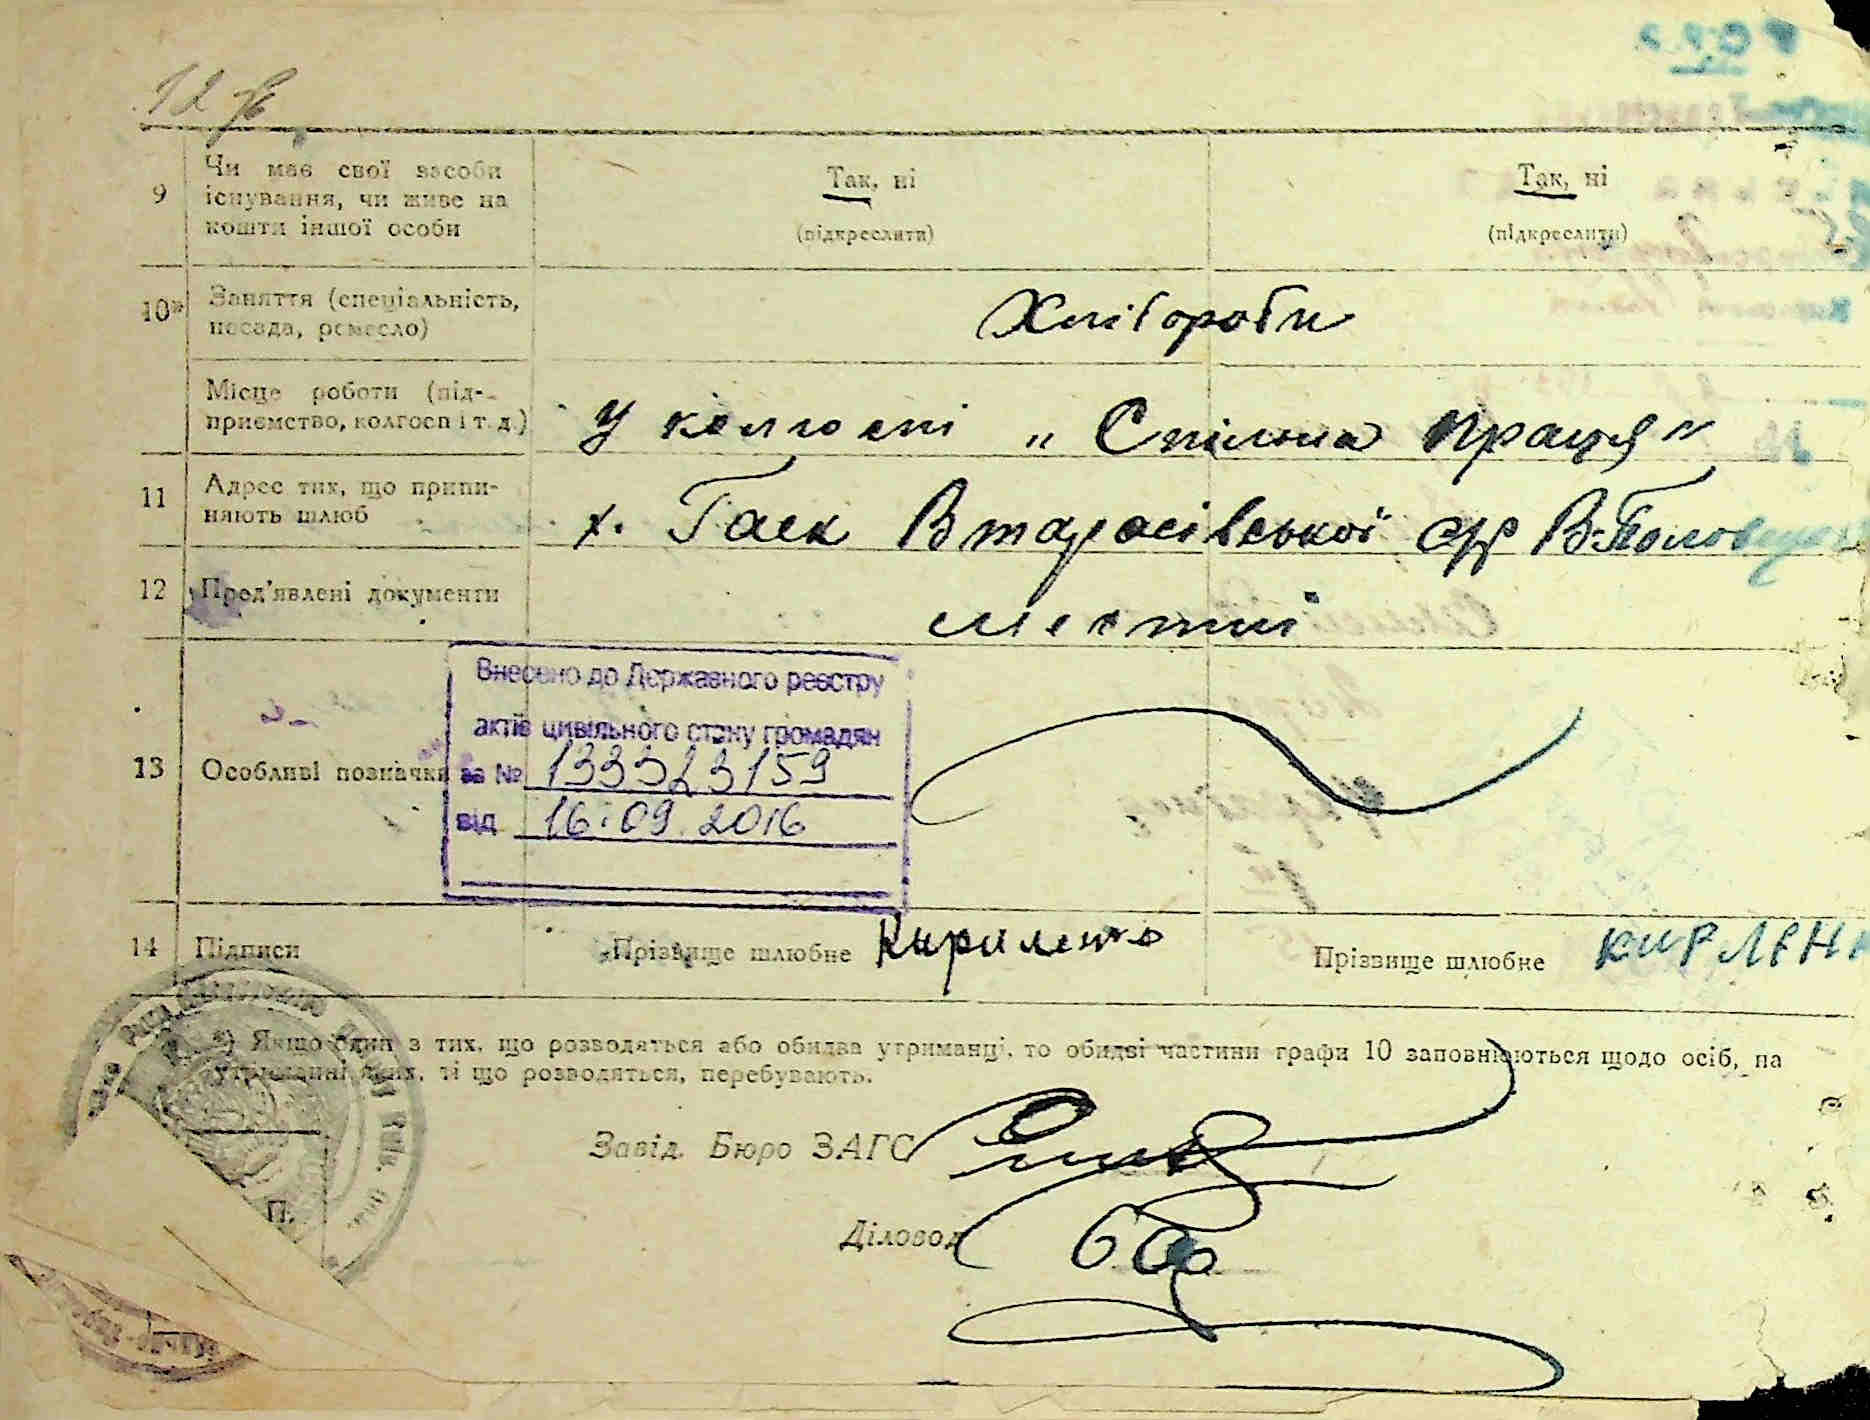 12
9 Чи має свої засоби існування, чи живе на кошти іншої особи
Так, ні
(підкреслити)
Так, ні
(підкреслити)
10* Заняття (спеціальність, посада, ремесло)
Хлібороби
Місце роботи (підприємство, колгосп і т. д.)
У колгоспі „Спільна праця"
11 Адрес тих, що припиняють шлюб
х. Гаєк Втарасівської с/р В.Половецьк
12 Пред'явлені документи
местні
13 Особливі позначки
Внесено до Державного реєстру
актів цивільного стану громадян
за № 133323159
від 16.09.2016
14 Підписи
Прізвище шлюбне Кириленко
Прізвище шлюбне КИРЛЕН
*) Якщо один з тих, що розводяться або обидва утриманці, то обидві частини графи 10 заповнюються щодо осіб, на
утриманні яких, ті що розводяться, перебувають.
Завід. Бюро ЗАГС
П.
Діловод